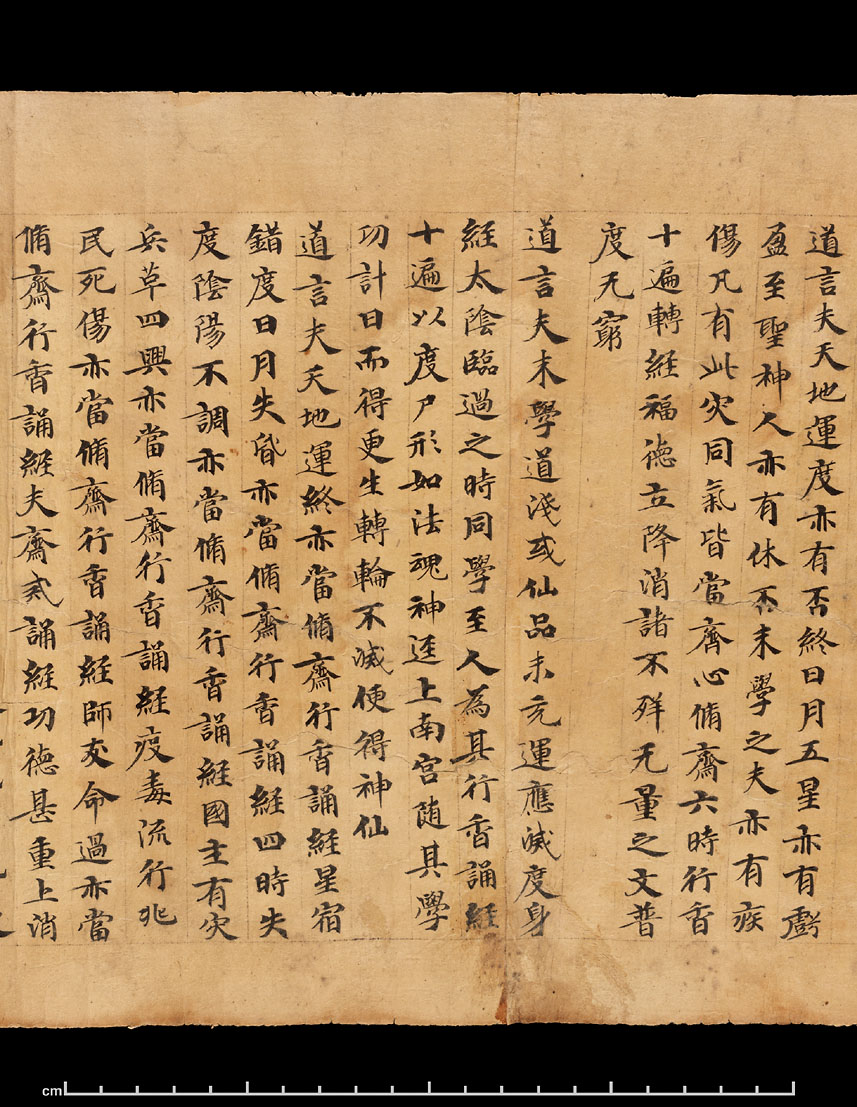 道言夫天地運度亦有否終日月五星亦有虧
盈至聖神人亦有休否末學之夫亦有疾
傷凡有此灾同氣皆當齊心脩齋六時行香
十遍轉經福德立降消諸不祥无量之文普
度无窮
道言夫末學道淺或仙品未充運應滅度身
經太陰臨過之時同學至人為其行香誦經
十遍以度尸形如法魂神逕上南宮随其學
功計日而得更生轉輪不滅便得神仙
道言夫天地運終亦當脩齋行香誦經星宿
錯度日月失昏亦當脩齋行香誦經四時失
度陰陽不調亦當脩齋行香誦經國主有灾
兵草四興亦當脩齋行香誦經疫毒流行兆
民死傷亦當脩齋行香誦經師友命過亦當
脩齋行香誦經夫齋戒誦經功德甚重上消